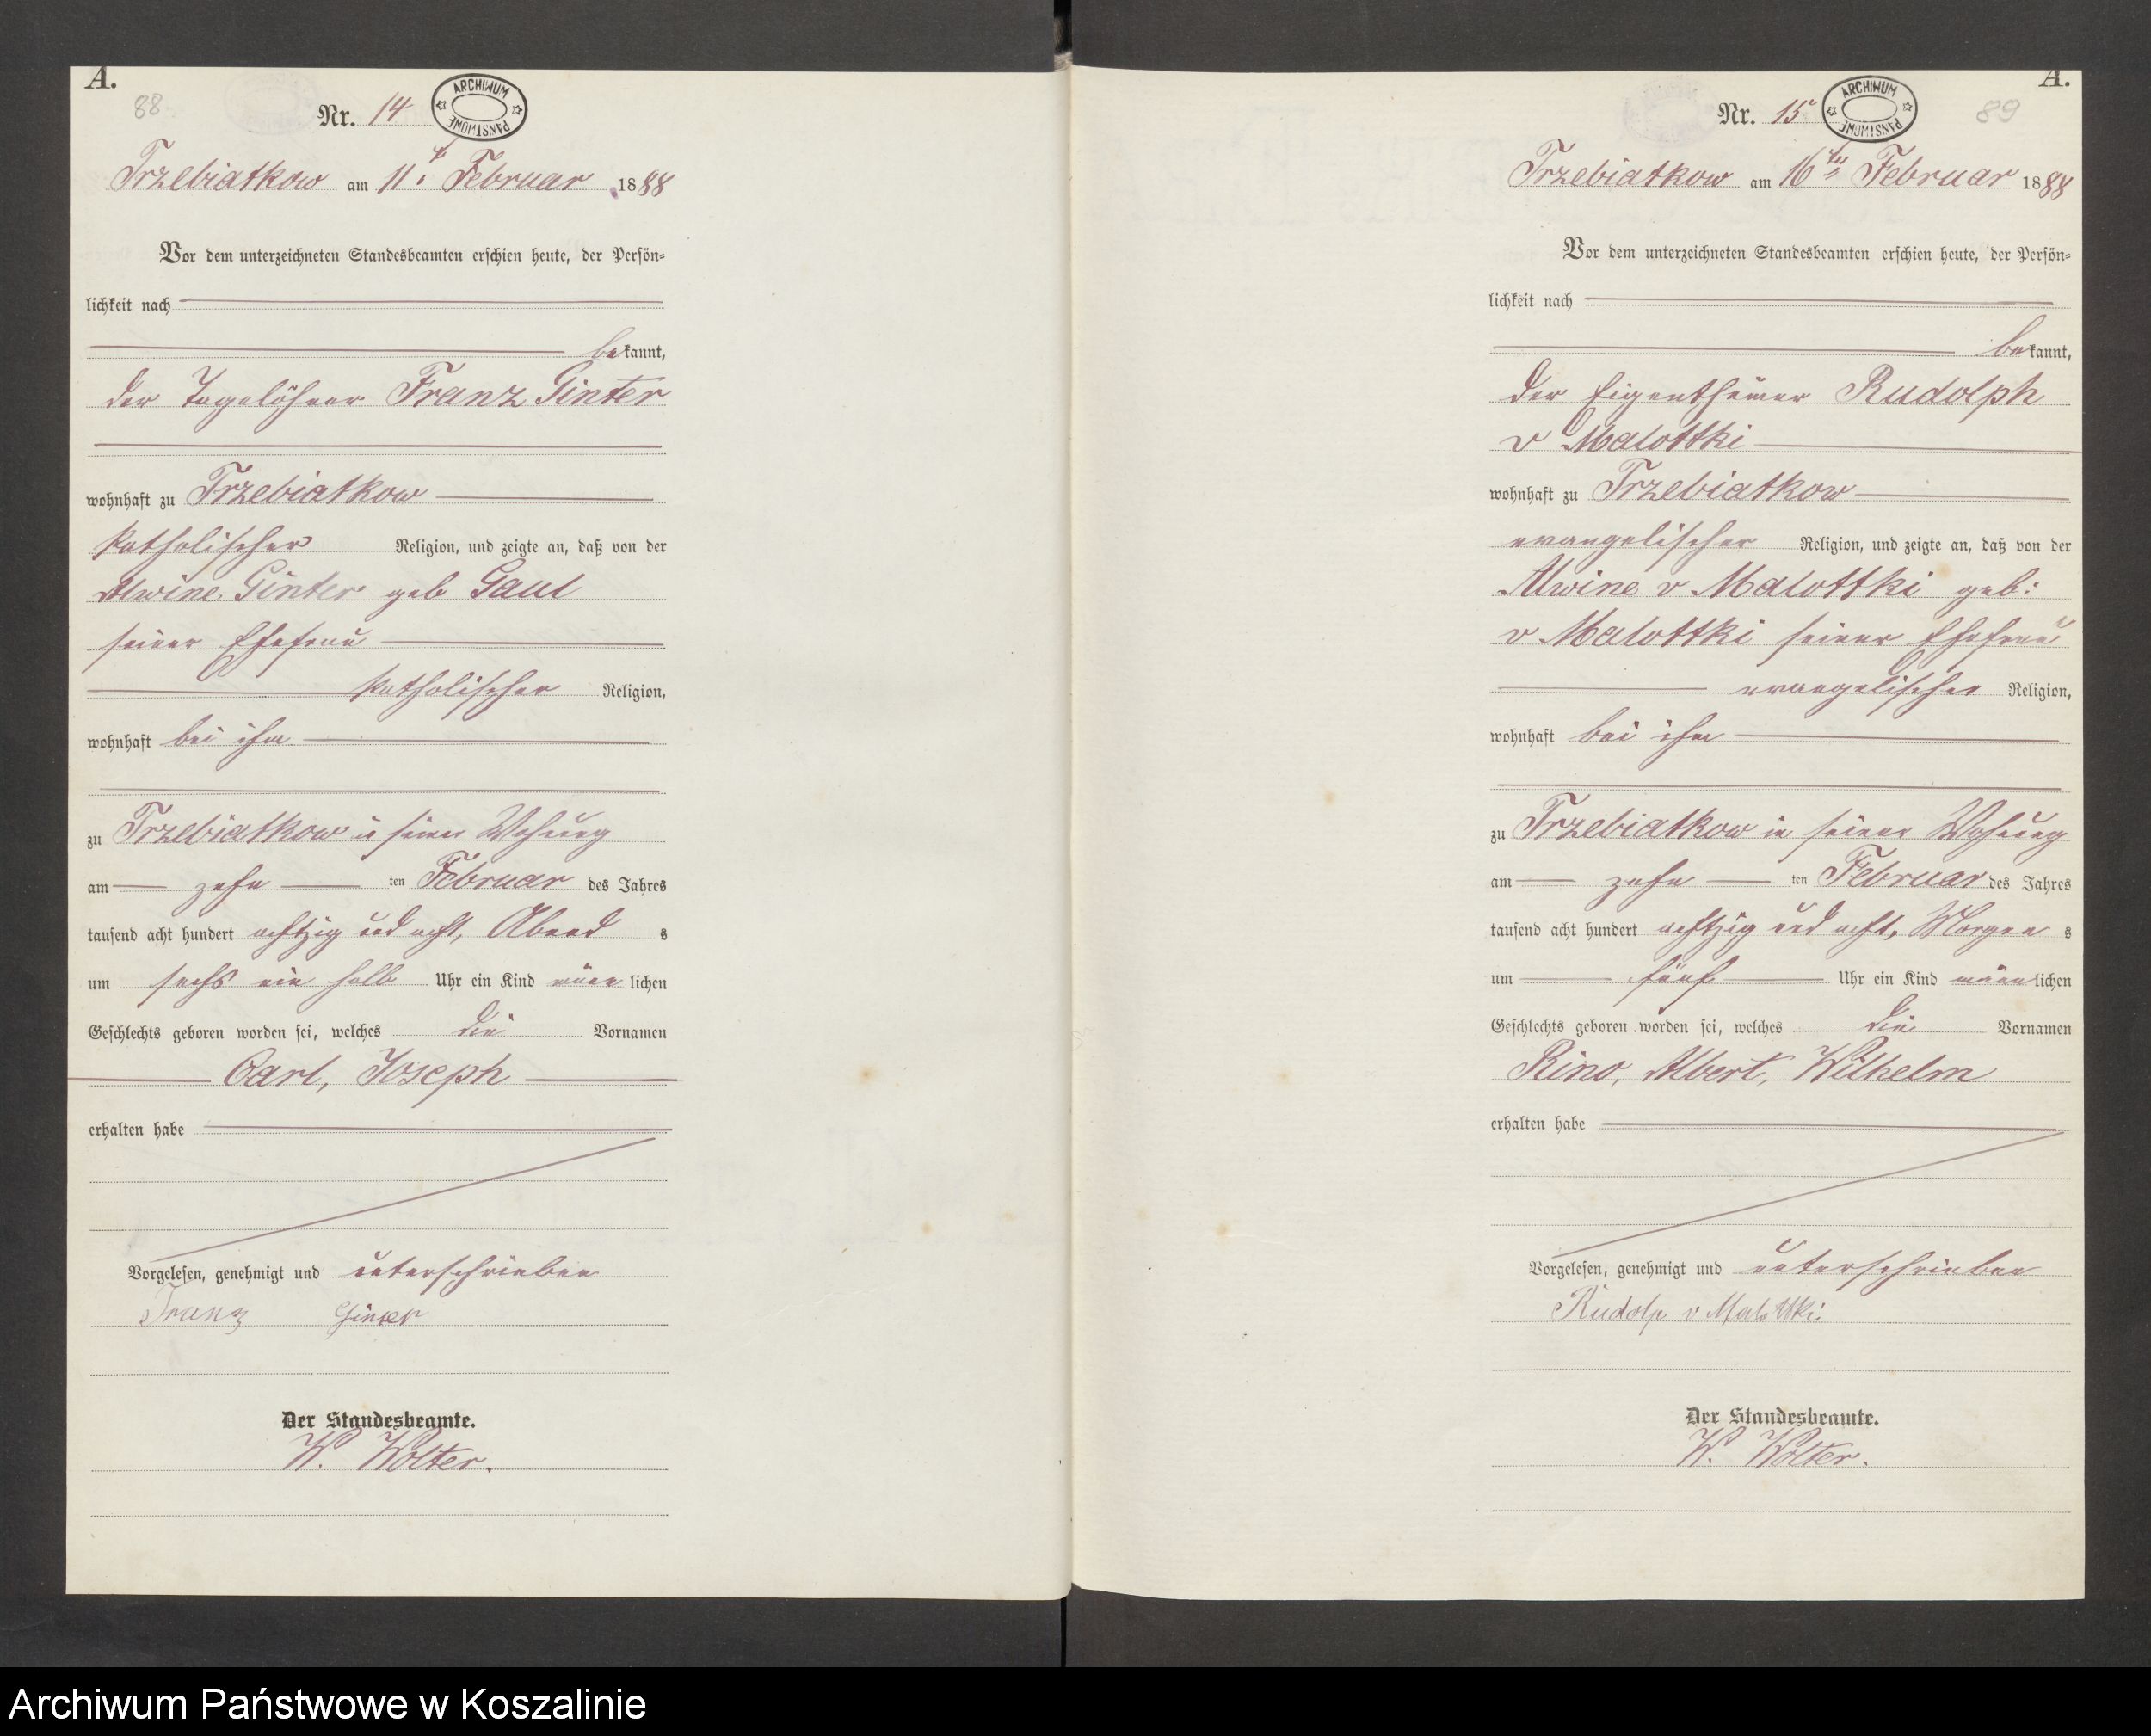 A.
88
Nr. 14
ARCHIWUM PAŃSTWOWE
Trzebiatkow am 11t. Februar 1888
Vor dem unterzeichneten Standesbeamten erschien heute, der Persön=
lichkeit nach
bekannt,
der Tagelöhner Franz Ginter
wohnhaft zu Trzebiatkow
katholischer Religion, und zeigte an, daß von der
Alwine Ginter geb Gaul
seiner Ehefrau
katholischer Religion,
wohnhaft bei ihm
zu Trzebiatkow in seiner Wohnung
am zehn ten Februar des Jahres
tausend acht hundert achtzig und acht, Abend s
um sechs ein halb Uhr ein Kind männ lichen
Geschlechts geboren worden sei, welches die Vornamen
Carl, Joseph
erhalten habe
Vorgelesen, genehmigt und unterschrieben
Franz Ginter
Der Standesbeamte.
W. Wolter.
A.
89
Nr. 15
ARCHIWUM PAŃSTWOWE
Trzebiatkow am 16ten Februar 1888
Vor dem unterzeichneten Standesbeamten erschien heute, der Persön=
lichkeit nach
bekannt,
der Eigenthümer Rudolph
v Malottki
wohnhaft zu Trzebiatkow
evangelischer Religion, und zeigte an, daß von der
Alwine v Malottki geb:
v Malottki seiner Ehefrau
evangelischer Religion,
wohnhaft bei ihm
zu Trzebiatkow in seiner Wohnung
am zehn ten Februar des Jahres
tausend acht hundert achtzig und acht, Morgen s
um fünf Uhr ein Kind männ lichen
Geschlechts geboren worden sei, welches die Vornamen
Rino, Albert, Wilhelm
erhalten habe
Vorgelesen, genehmigt und unterschrieben
Rudolp v Malottki
Der Standesbeamte.
W. Wolter.
Archiwum Państwowe w Koszalinie